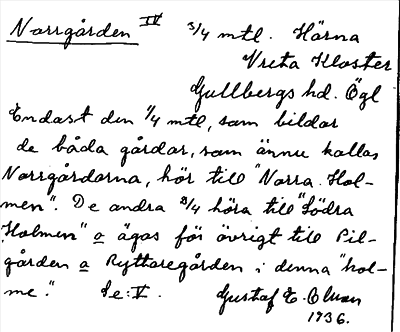 Norrgården IV 3/4 mtl. Härna
Vreta Kloster
Gullbergs hd. Ögl
Endast den 1/4 mtl, som bildar
de båda gårdar, som ännu kallas
Norrgårdarna, hör till "Norra Hol-
men". De andra 3/4 höra till "Södra
Holmen" o ägas för övrigt till Pil-
gården o Ryttaregården i denna "hol-
me." Se: V. Gustaf E. Olsson
1936.